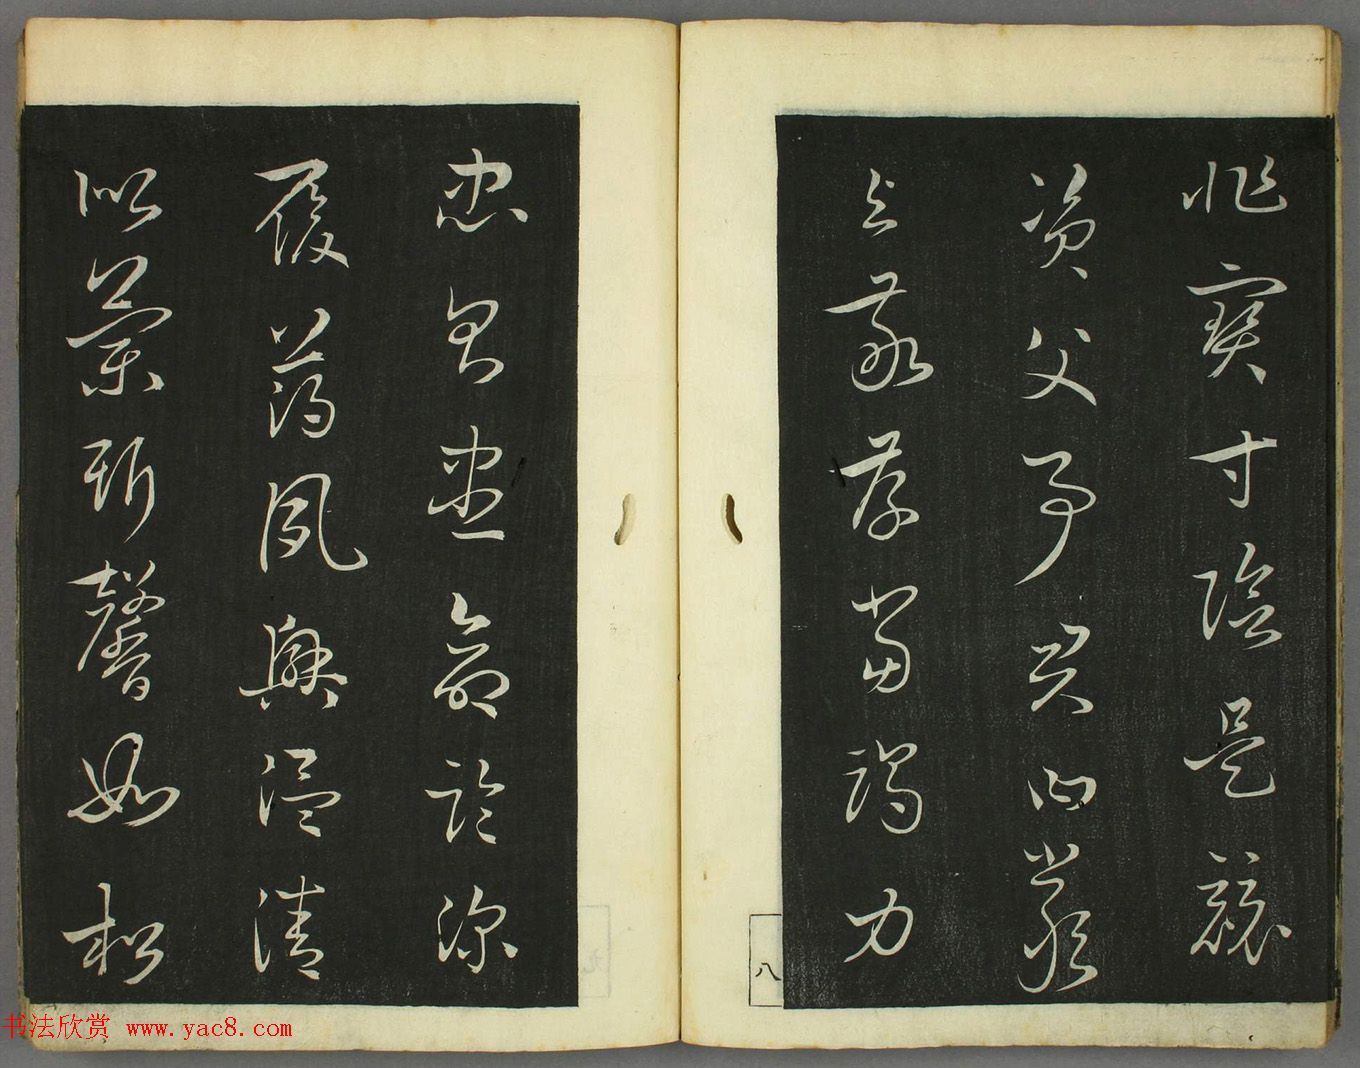 非寶寸陰是競
資父事君曰嚴
与敬孝當竭力
八
忠則盡命臨深
履薄夙興溫清
似蘭斯馨如松
书法欣赏 www.yac8.com